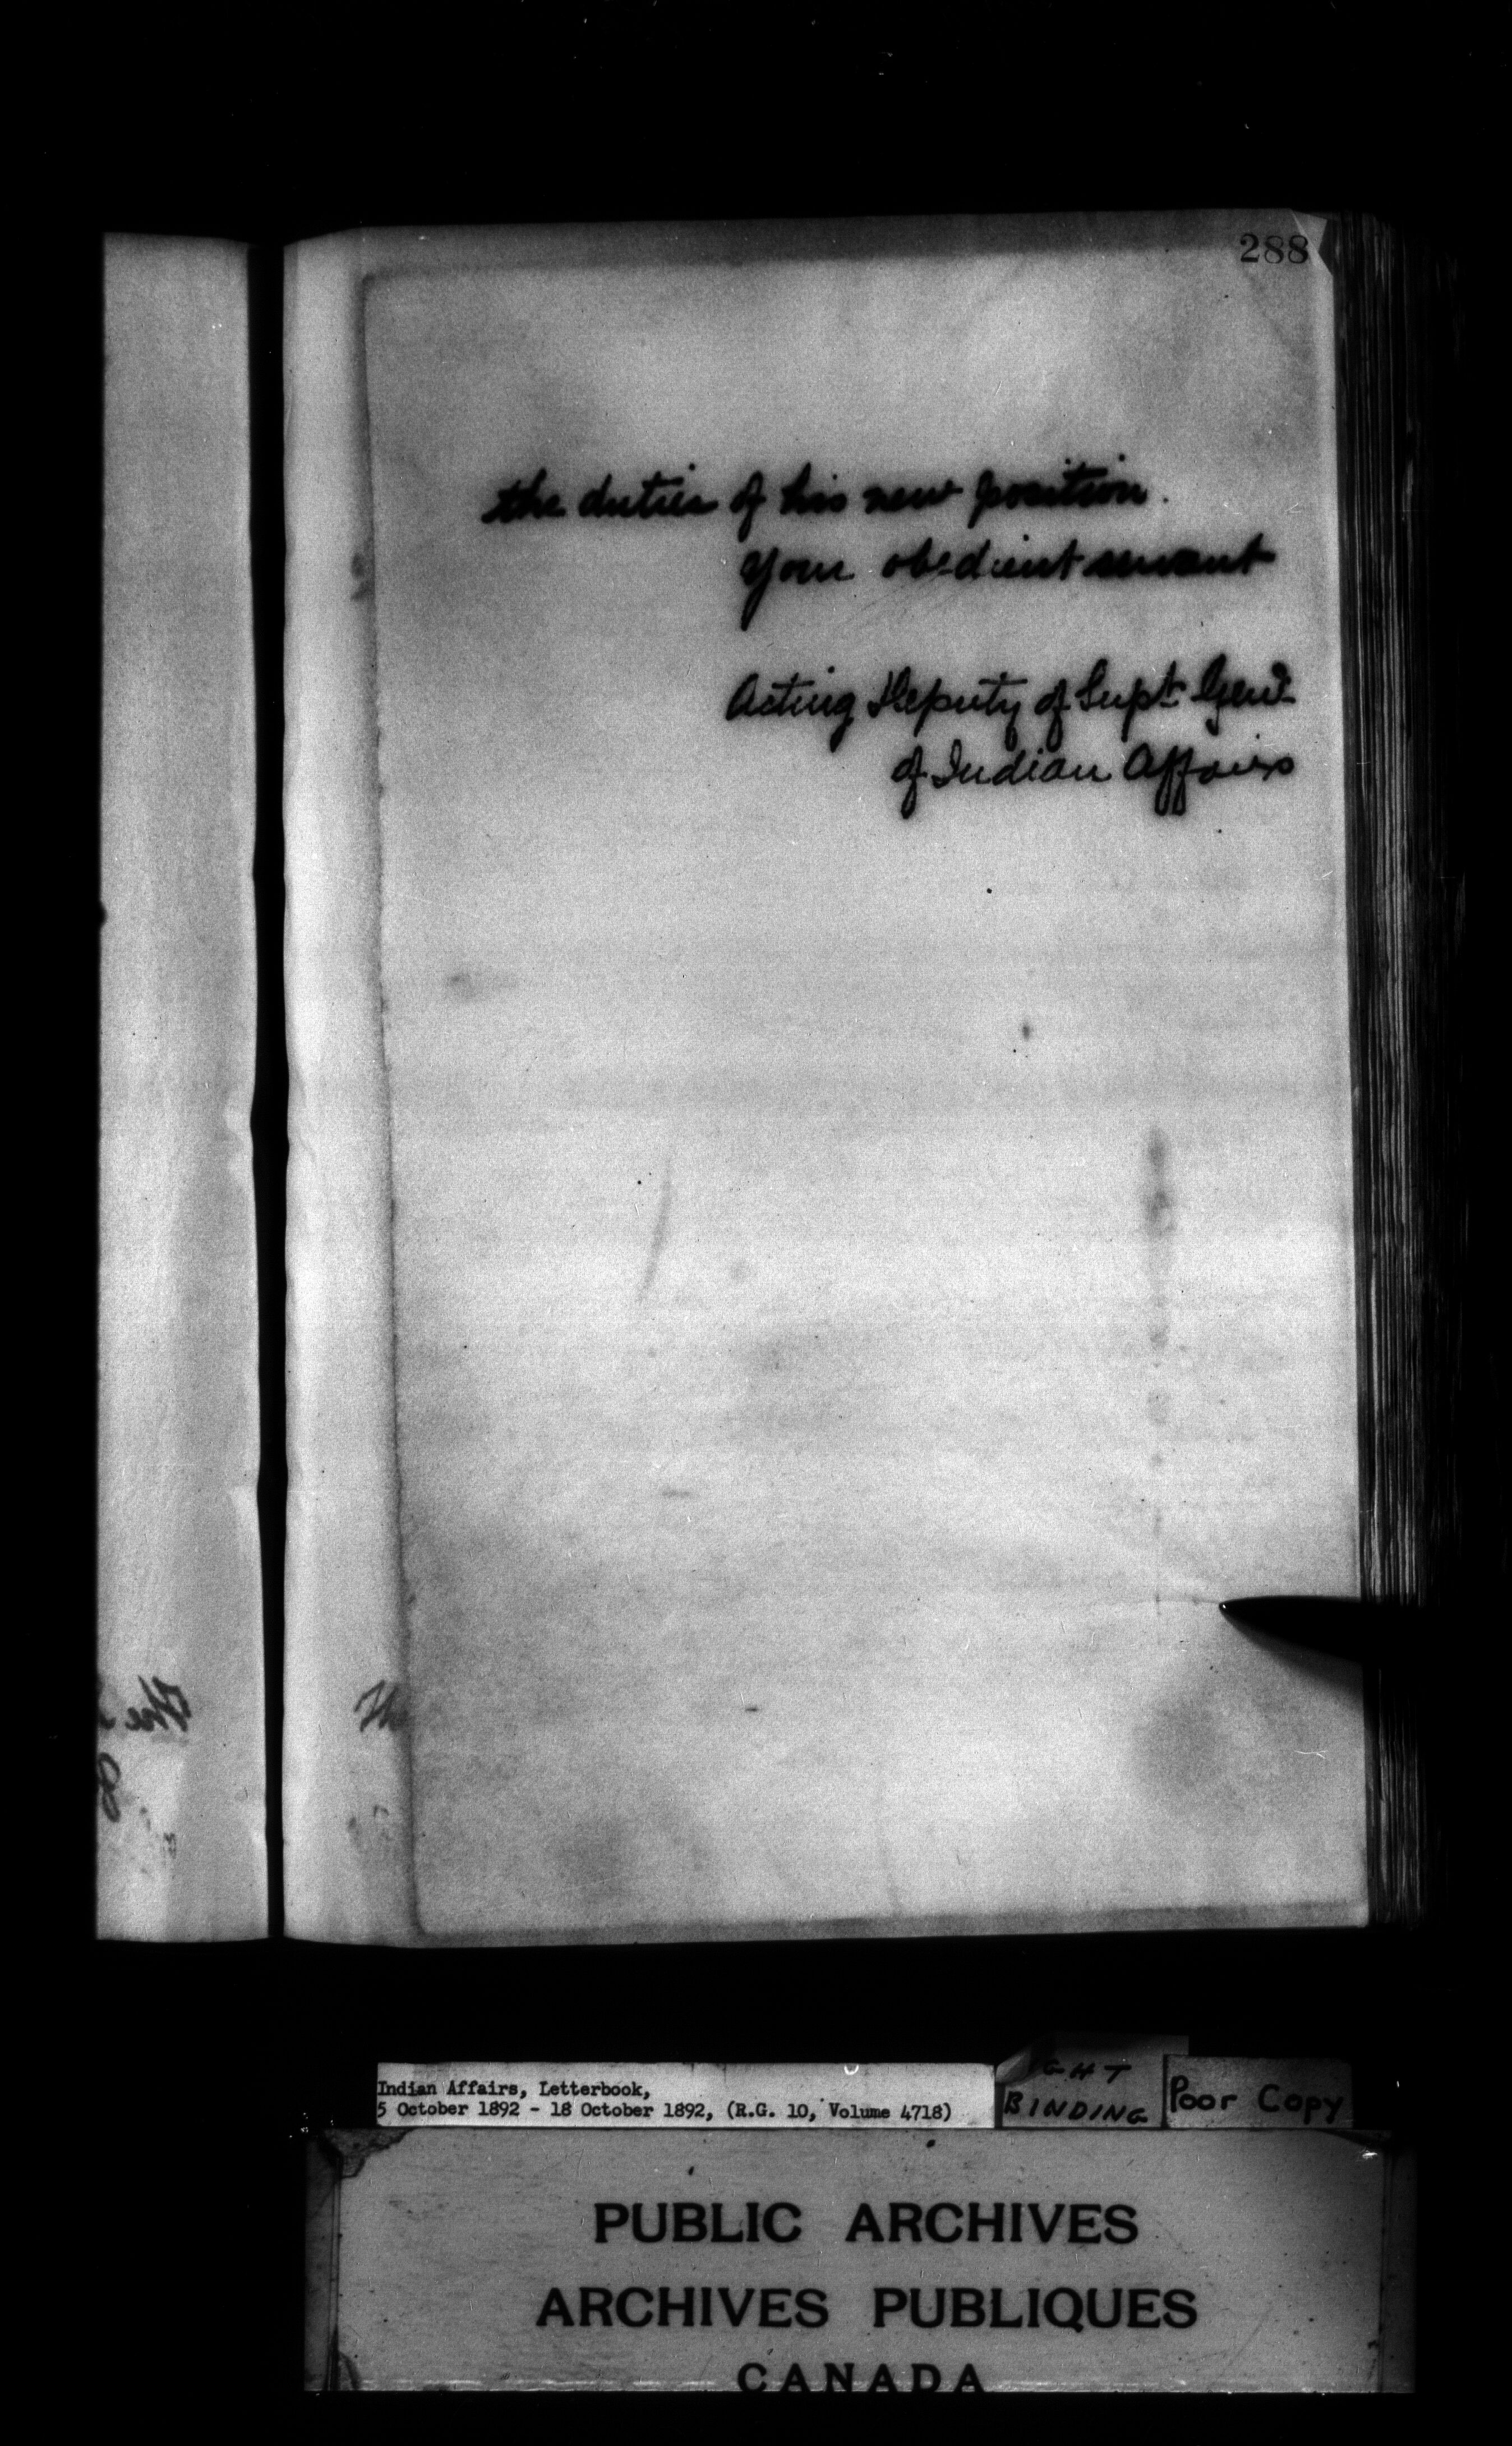 288
the duties of his new position.
Your obedient servant
Acting Deputy of Supt. Genl.
of Indian Affairs
the
Th
Indian Affairs, Letterbook,
5 October 1892 - 18 October 1892, (R.G. 10, Volume 4718)
GHT
BINDING
Poor Copy
PUBLIC ARCHIVES
ARCHIVES PUBLIQUES
CANADA